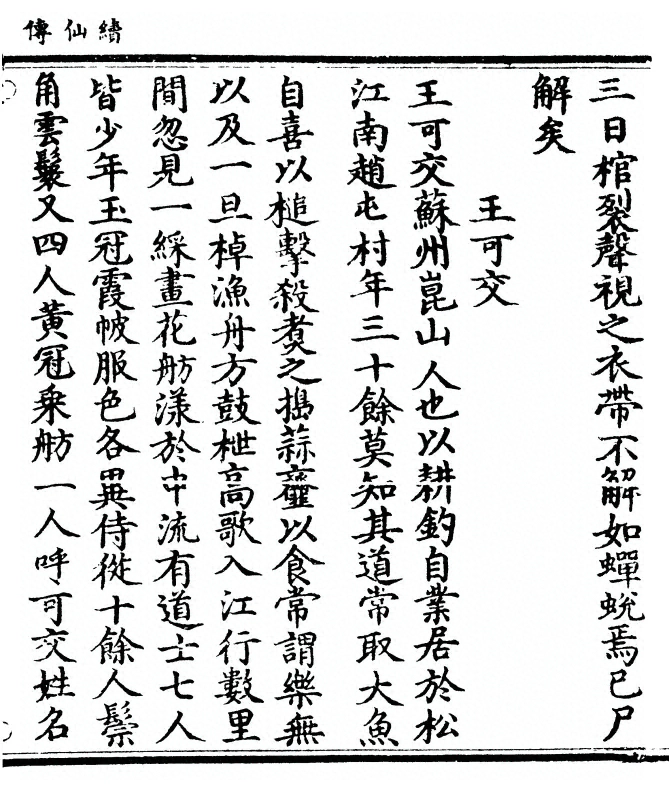 續仙傳
三日棺裂聲視之衣帶不解如蟬蛻焉已尸
解矣
王可交
王可交蘇州崑山人也以耕釣自業居於松
江南趙屯村年三十餘莫知其道常取大魚
自喜以槌擊殺煑之擣蒜虀以食常謂樂無
以及一旦棹漁舟方鼓枻高歌入江行數里
間忽見一綵畫花舫漾於中流有道士七人
皆少年玉冠霞帔服色各異侍從十餘人鬃
角雲鬟又四人黃冠乗舫一人呼可交姓名